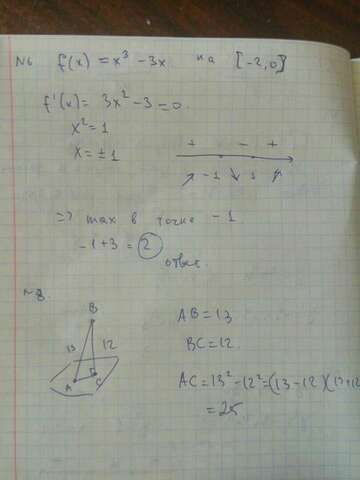 №6 f(x) = x³ - 3x на [-2,0]
f'(x) = 3x² - 3 = 0.
x² = 1
x = ± 1
+ - +
-1 1
=> max в точке -1
-1+3 = 2
ответ.
№8.
B
13 12
A C
AB = 13
BC = 12.
AC = 13² - 12² = (13 - 12)(13+12
= 25.